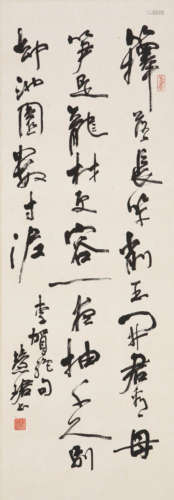 籜落長竿削玉開君看母
笋是龍材更容一夜抽千尺別
卻池園數寸泥
李賀絕句
慧珺书